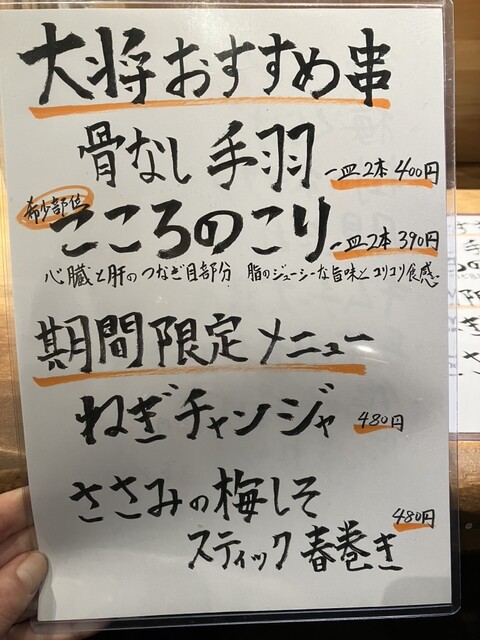 大将おすすめ串
骨なし手羽 一皿2本 400円
希少部位
こころのこり 一皿2本 390円
心臓と肝のつなぎ目部分 脂のジューシーな旨味とコリコリ食感
期間限定メニュー
ねぎチャンジャ 480円
ささみの梅しそ
スティック春巻き 480円